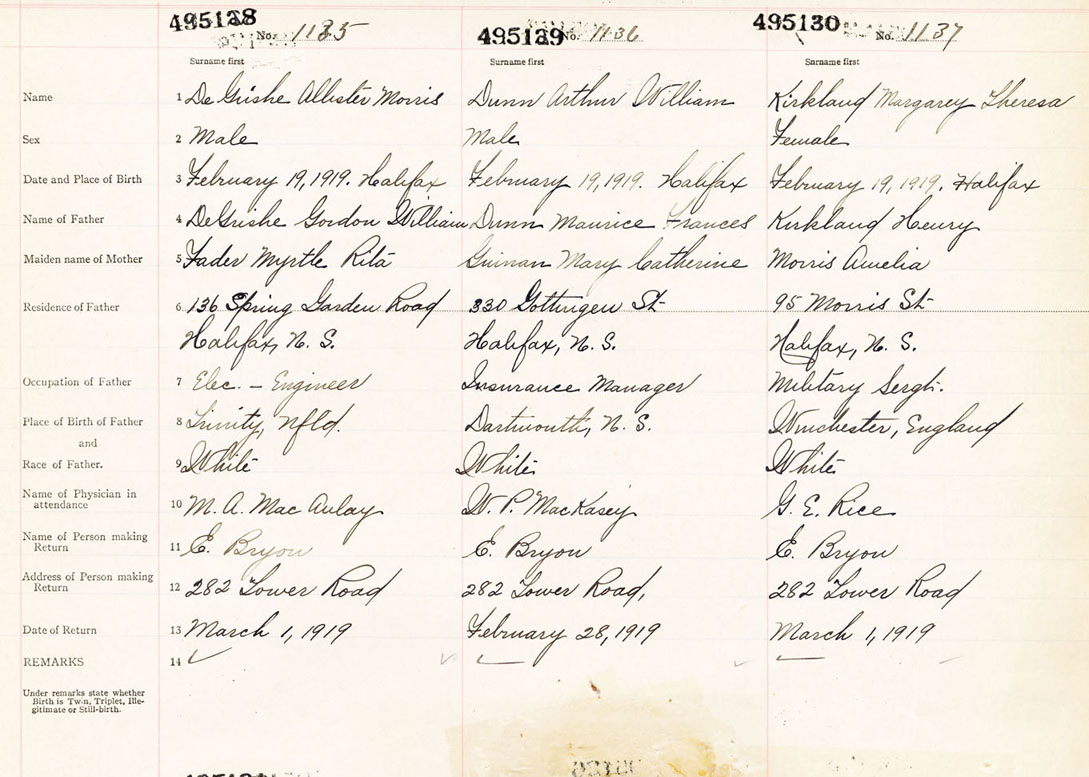 495128 495129 495130
No. 1135 No. 1136 No. 1137
Surname first Surname first Surname first
Name 1 De Grishe Allister Morris Dunn Arthur William Kirkland Margarey Theresa
Sex 2 Male Male Female
Date and Place of Birth 3 February 19, 1919. Halifax February 19, 1919. Halifax February 19, 1919. Halifax
Name of Father 4 DeGrishe Gordon William Dunn Maurice Frances Kirkland Henry
Maiden name of Mother 5 Fader Myrtle Rita Guinan Mary Catherine Morris Amelia
Residence of Father 6 136 Spring Garden Road 330 Gottingen St 95 Morris St
Halifax, N. S. Halifax, N. S. Halifax, N. S.
Occupation of Father 7 Elec. - Engineer Insurance Manager Military Sergt.
Place of Birth of Father 8 Trinity, Nfld. Dartmouth, N. S. Winchester, England
and
Race of Father. 9 White White White
Name of Physician in
attendance 10 M. A. Mac Aulay W. P. MacKasey G. E. Rice
Name of Person making
Return 11 E. Bryon E. Bryon E. Bryon
Address of Person making
Return 12 282 Tower Road 282 Tower Road, 282 Tower Road
Date of Return 13 March 1, 1919 February 28, 1919 March 1, 1919
REMARKS 14
Under remarks state whether
Birth is Twin, Triplet, Ille-
gitimate or Still-birth.